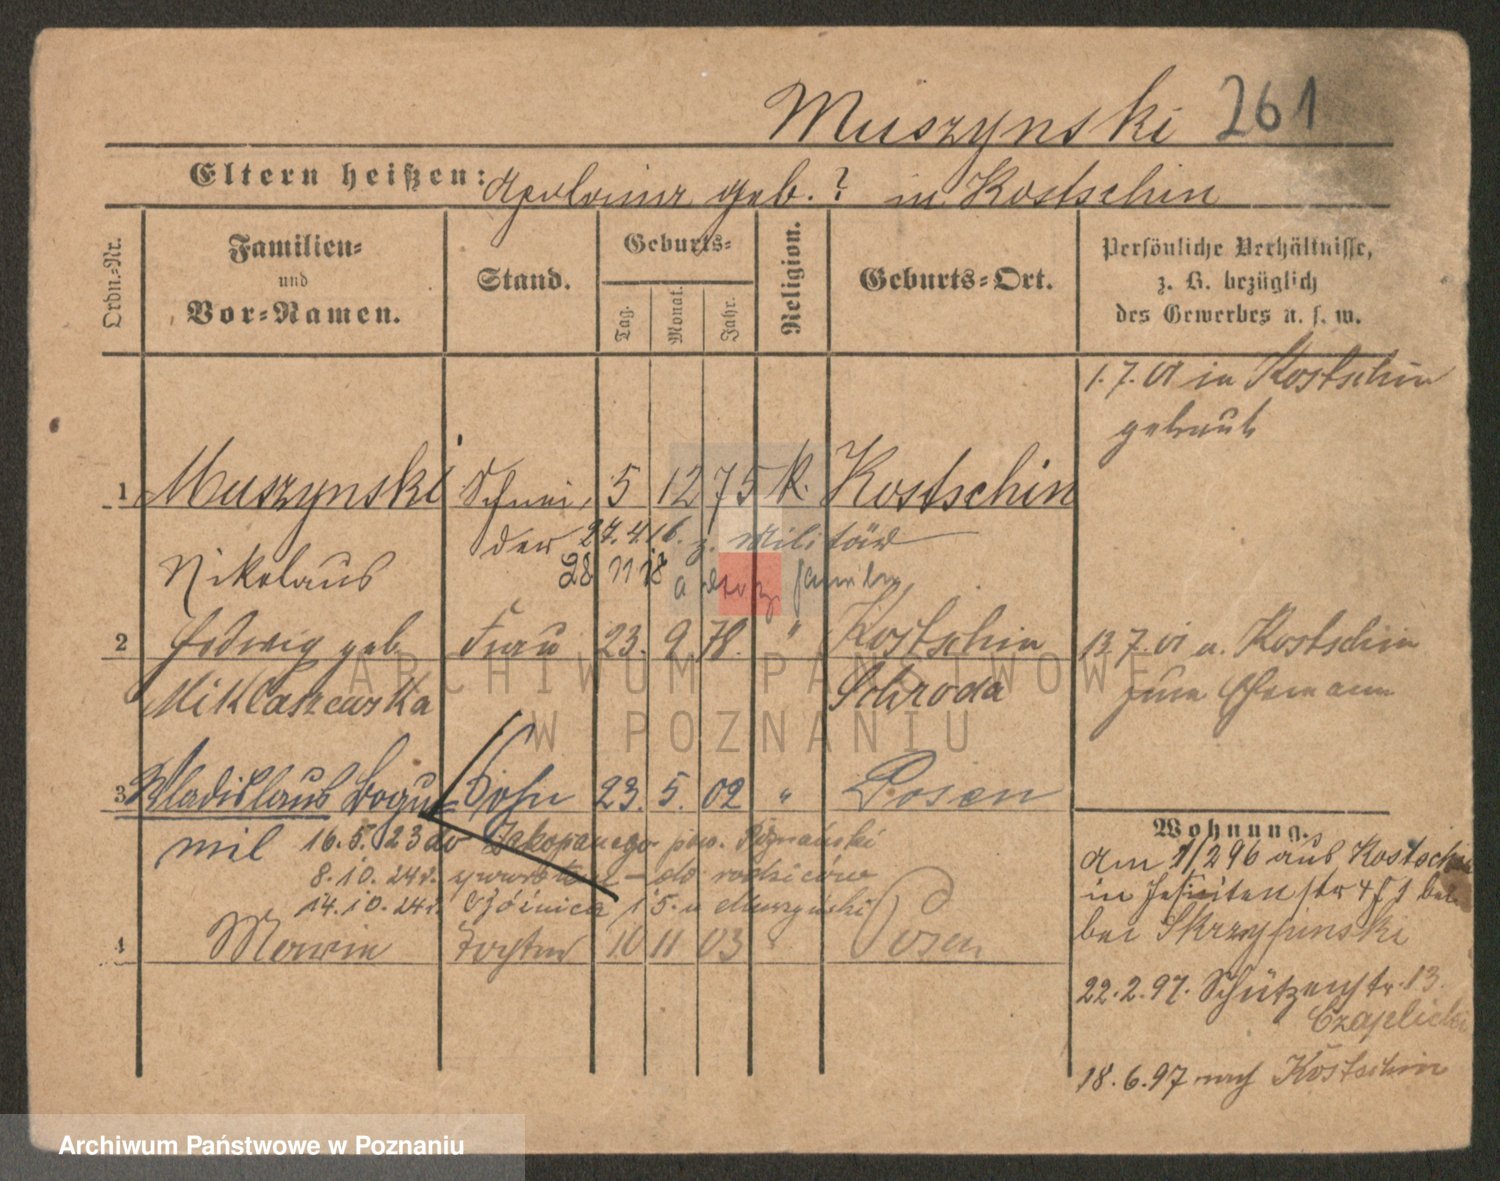 Muszynski 261
Eltern heißen: Apolonia geb. ? in Kostschin
Ordn.-Nr.
Familien-
und
Vor-Namen.
Stand.
Geburts-
Tag.
Monat.
Jahr.
Religion.
Geburts-Ort.
Persönliche Verhältnisse,
z. B. bezüglich
des Gewerbes u. s. w.
1.7.01 in Kostschin
getraut
1 Muszynski Schnei- 5 12 75 k. Kostschin
der 27.4.16. z. Militär
Nikolaus 28 11 18
2 Hedwig geb. Frau 23. 9 78. " Kostschin
13.7.01 a. Kostschin
Miklaszewska Schroda
zum Ehemann
3 Wladislaus Bogu- Sohn 23. 5. 02 " Posen
mil 16.5.23 do Zakopanego pow. Poznański
8.10.24r. – do rodziców
14.10.24r. 15. u Muszyński
4 Tochter 10 11 03 " Posen
Wohnung.
Am 1/2 96 aus Kostschin
in Jesuitenstr
bei Skrzypinski
22.2.97. Schützenstr. 13.
Czaplicki
18.6.97 nach Kostschin
ARCHIWUM PAŃSTWOWE
W POZNANIU
Archiwum Państwowe w Poznaniu